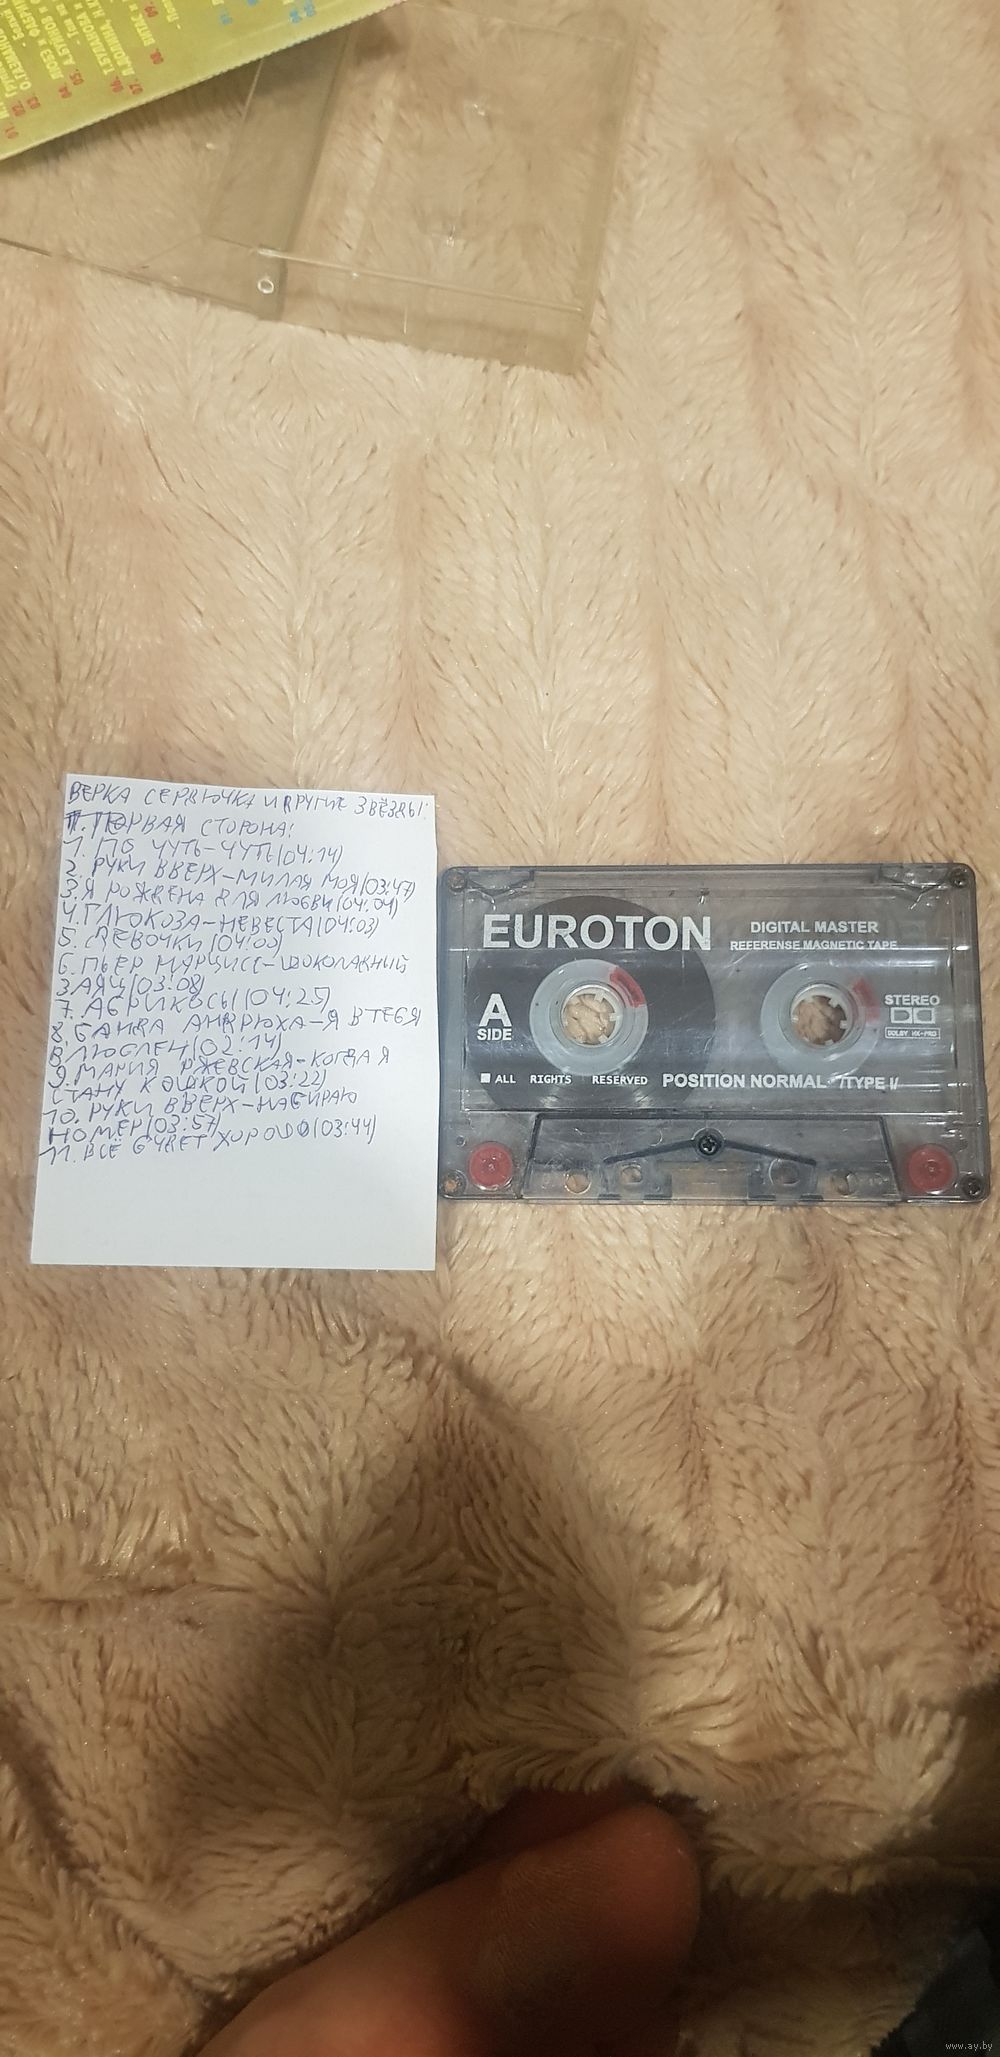 ВЕРКА СЕРДЮЧКА И ДРУГИЕ ЗВЁЗДЫ:
ПЕРВАЯ СТОРОНА:
1. ПО ЧУТЬ-ЧУТЬ(04:14)
2. РУКИ ВВЕРХ-МИЛАЯ МОЯ(03:47)
3. Я РОЖДЕНА ДЛЯ ЛЮБВИ(04:04)
4. ГЛЮКОЗА-НЕВЕСТА(04:03)
5. ДЕВОЧКИ(04:00)
6. ПЬЕР НАРЦИСС-ШОКОЛАДНЫЙ
ЗАЯЦ(03:08)
7. АБРИКОСЫ(04:25)
8. БАНДА АНДРЮХА-Я В ТЕБЯ
ВЛЮБЛЕН(02:14)
9. МАНИЯ РЖЕВСКАЯ-КОГДА Я
СТАНУ КОШКОЙ(03:22)
10. РУКИ ВВЕРХ-НАБИРАЮ
НОМЕР(03:57)
11. ВСЁ БУДЕТ ХОРОШО(03:44)
EUROTON
DIGITAL MASTER
REFERENSE MAGNETIC TAPE
A
SIDE
STEREO
DOLBY HX-PRO
ALL RIGHTS RESERVED
POSITION NORMAL /TYPE I/
www.ay.by